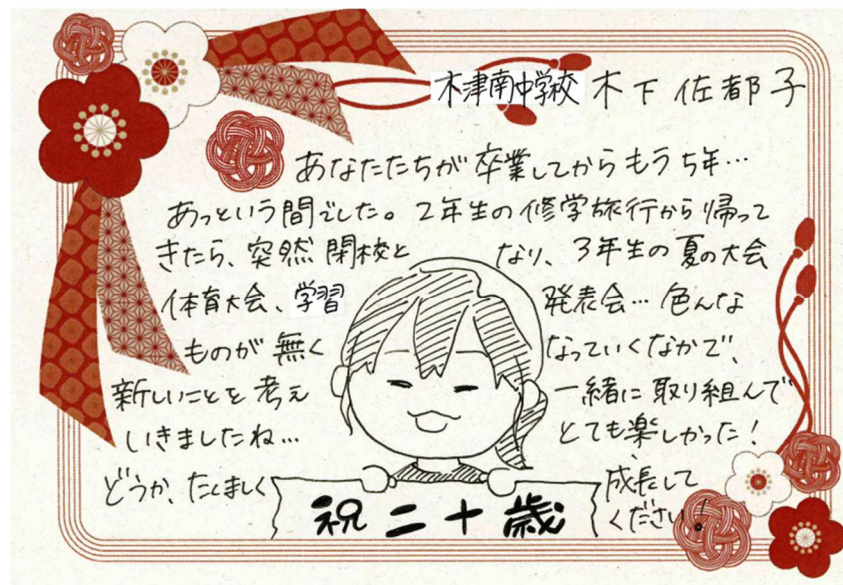 木津南中学校 木下 佐都子
あなたたちが卒業してからもう5年…
あっという間でした。2年生の修学旅行から帰って
きたら、突然閉校となり、3年生の夏の大会
体育大会、学習発表会…色んな
ものが無くなっていくなかで、
新しいことを考え一緒に取り組んで
いきましたね…とても楽しかった!
どうか、たくましく成長して
ください!
祝二十歳